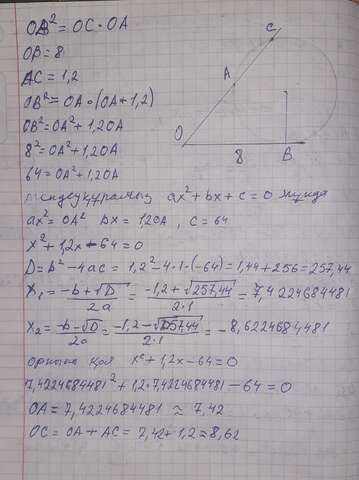 OB² = OC · OA
OB = 8
AC = 1,2
OB² = OA · (OA + 1,2)
OB² = OA² + 1,2OA
8² = OA² + 1,2OA
64 = OA² + 1,2OA
C
A
O
8
B
теңдеу құрамыз ax² + bx + c = 0 түрінде
ax² = OA² bx = 1,2OA , c = 64
x² + 1,2x - 64 = 0
D = b² - 4ac = 1,2² - 4·1·(-64) = 1,44 + 256 = 257,44
x₁ = (-b + √D)/2a = (-1,2 + √257,44)/2·1 = 7,4224684481
x₂ = (-b - √D)/2a = (-1,2 - √257,44)/2·1 = -8,6224684481
орнына қоя x² + 1,2x - 64 = 0
7,4224684481² + 1,2·7,4224684481 - 64 = 0
OA = 7,4224684481 ≈ 7,42
OC = OA + AC = 7,42 + 1,2 ≈ 8,62